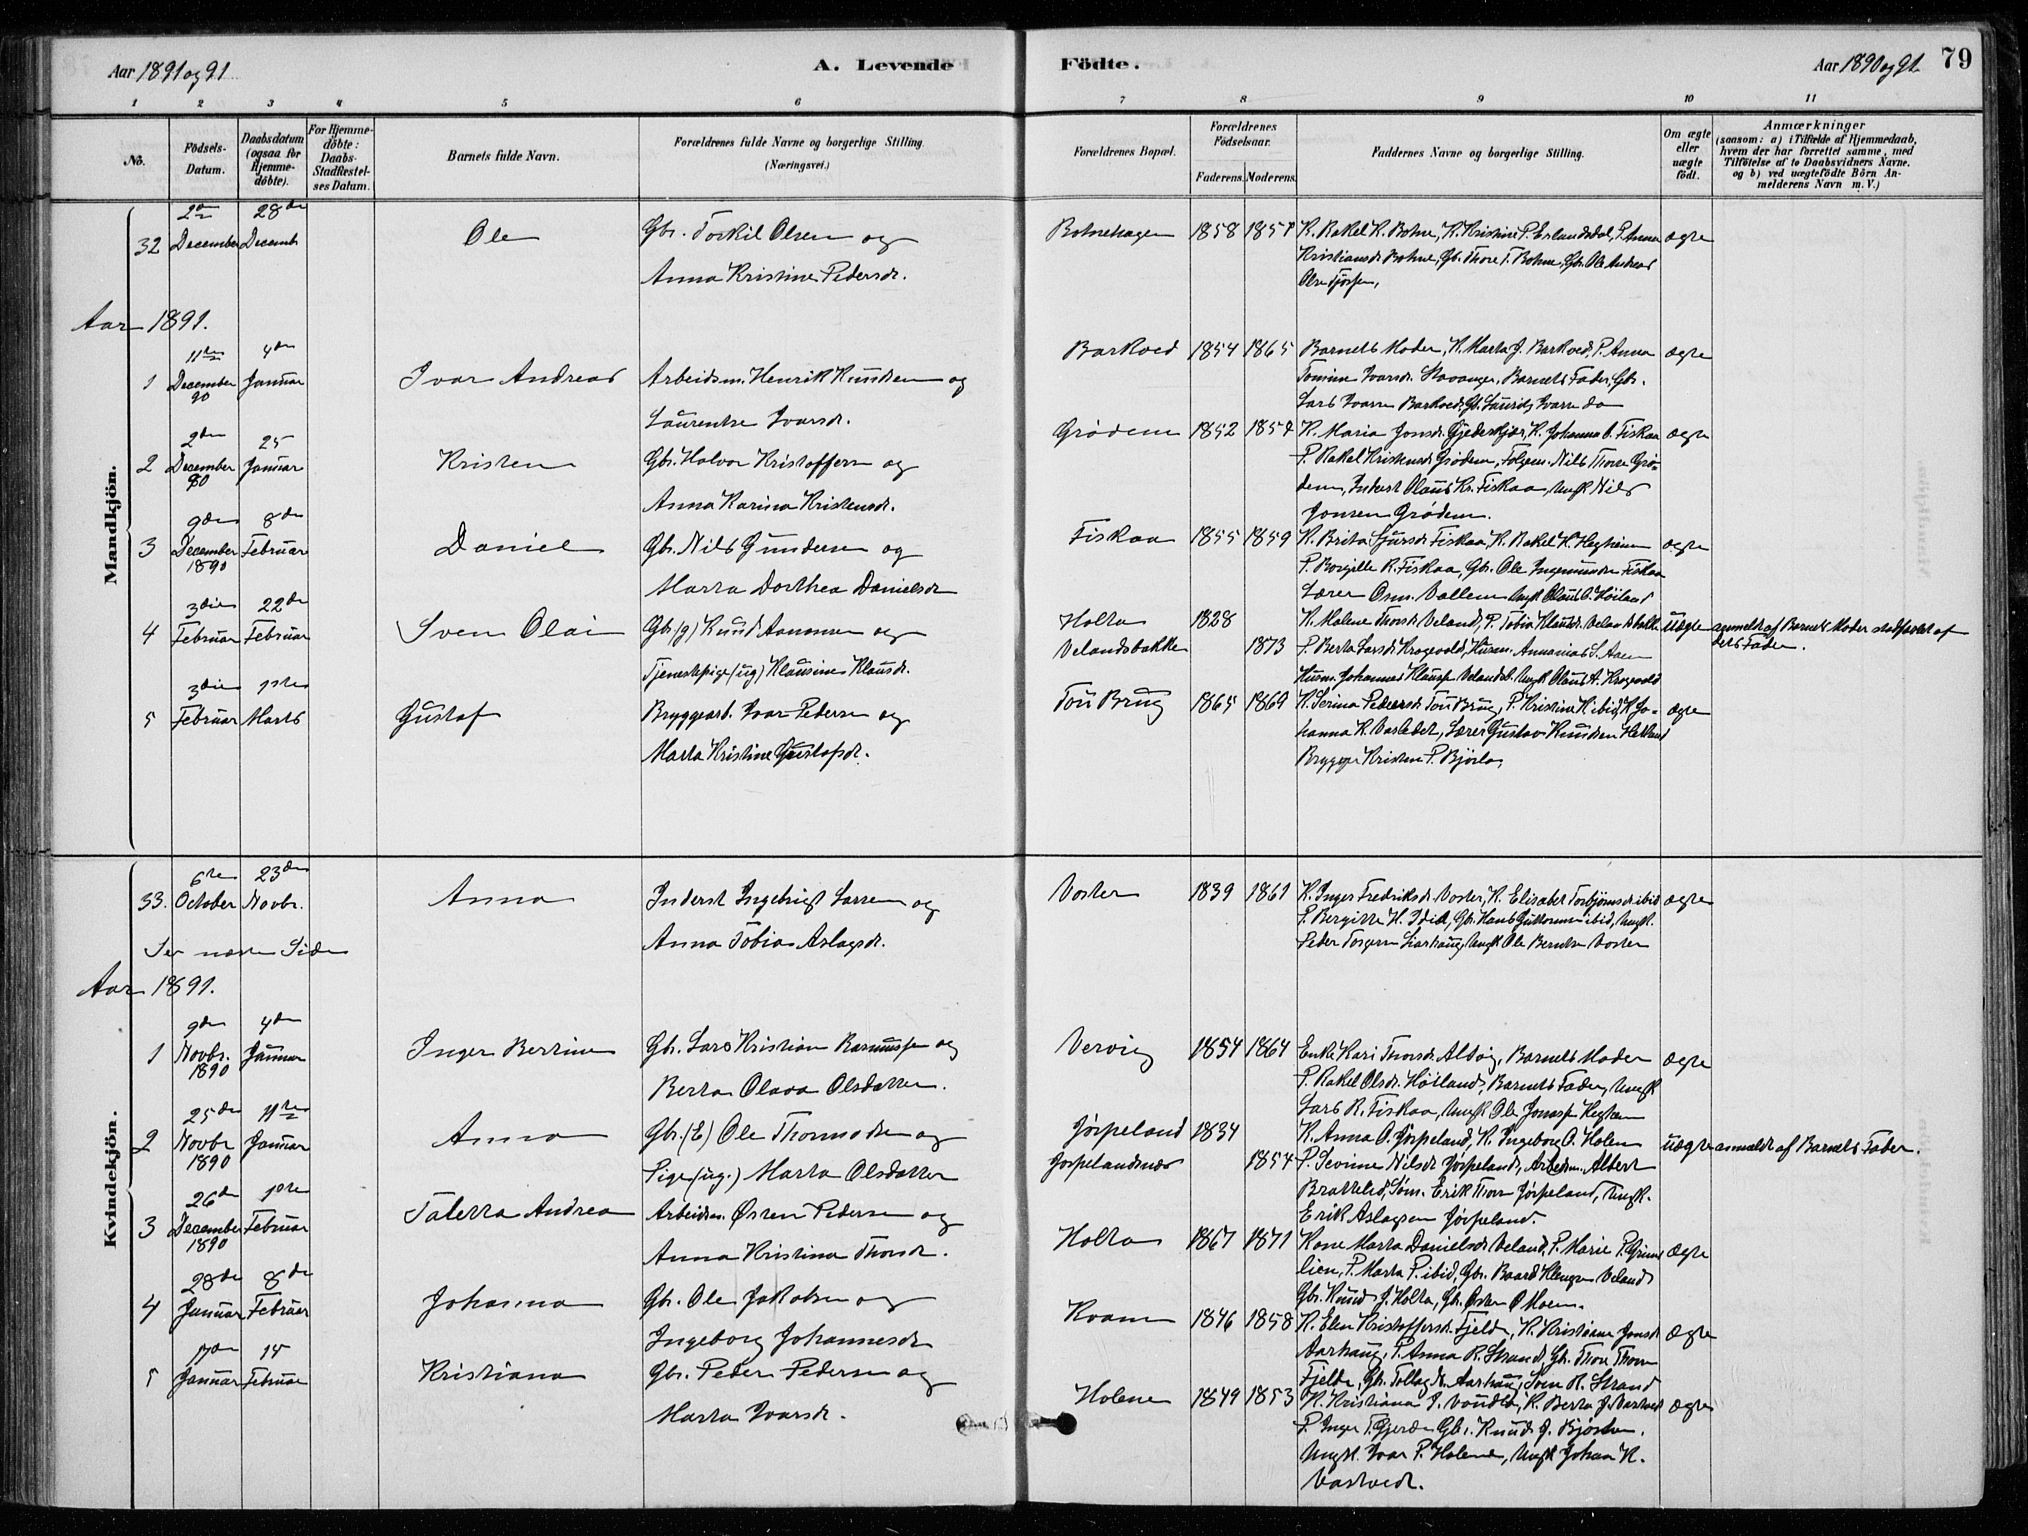 Aar 1891 og 91
A. Levende
Födte.
Aar 1890 og 91
79
1 2 3 4 5 6 7 8 9 10 11
No.
Födsels-
Datum.
Daabsdatum
(ogsaa for
Hjemme-
döbte).
For Hjemme-
döbte:
Daabs-
Stadfæstel-
ses Datum.
Barnets fulde Navn.
Forældrenes fulde Navne og borgerlige Stilling.
(Næringsvei.)
Forældrenes Bopæl.
Forældrenes
Födselsaar.
Faderens. Moderens.
Faddernes Navne og borgerlige Stilling.
Om ægte
eller
uægte
födt.
Anmærkninger
(saasom: a) i Tilfælde af Hjemmedaab,
hvem der har forrettet samme, med
Tilföielse af to Daabsvidners Navne.
og b) ved uægtefödte Börn An-
melderens Navn m. V.)
Mandkjön.
32
2den December
28de Decemb
Ole
Gbr. Torkil Olsen og
Anna Kristine Pedersdr.
Bohnehagen 1858 1857
K. Rakel K. Bohne, K. Kristine P. Erlandsdal, P. Anna
Kristiansdr Bohne, Gb. Thore T. Bohne, Gbr. Ole Andreas
ægte
Aar 1891.
1
11te December 90
4de Januar
Ivar Andreas
Arbeidsm. Henrik Knudsen og
Laurentse Ivarsdr.
Barkved 1854 1865
Barnets Moder, K. Marta J. Barkved, P. Anna
Tomine Ivarsdr. Stavanger, Barnets Fader, Gbr.
Lars Ivarsen Barkved, Gb. Laurids Ivarsen do
ægte
2
2den December 90
25 Januar
Kristen
Gbr. Halvor Kristoffersen og
Anna Karina Kristensdr.
Grødem 1852 1854
K. Maria Jonsdr. Gjederkjær, K. Johanna O. Fiskaa
P. Rakel Kristensdr Grødem, Folgem. Nils Thorse Grø-
dem, Inderst Olaus Kr. Fiskaa, Ungk Nils
Jonsen Grødem.
ægte
3
9de December 1890
8de Februar
Daniel
Gbr. Nils Gundersen og
Marta Dorthea Danielsdr
Fiskaa 1855 1859
K. Brita Sjursdr Fiskaa, K. Rakel K. Hegheim
P. Borgille R. Fiskaa, Gbr. Ole Ingemundsen Fiskaa
Lærer Osm. Vallem Ungk Olaus O. Høiland
ægte
4
3die Februar
22de Februar
Sven Olai
Gbr (g) Knud Aanensen og
Tjenestepige (ug) Klausine Klausdr.
Holta 1828
Velandsbakke 1873
K. Malene Thorsdr Veland, P. Tobia Klausdr. Velandsbakke
P. Berta Larsdr Krogevold, Husm. Annanias S. Aaen
Husm. Johannes Klausen Velandsb. Ungk Olaus A. Krogevold
uægte
anmeldt af Barnets Moder stadfæstet af
dets Fader.
5
3die Februar
1ste Marts
Gustaf
Bryggearb. Ivar Pedersen og
Marta Kristine Gustafsdr.
Tou Brug 1865 1869
K. Serina Pedersdr Tou Brug, P. Kristine K. ibid, K. Jo-
hanna K. Varladet, Lærer Gustav Knudsen Hetland
Brygger Kristen P. Bjørlo,
ægte
Kvindekjön.
33.
6te October
23de Novbr.
Anna
Inderst Ingebrigt Larsen og
Anna Tobia Aslagsdr.
Voster 1839 1861
K. Inger Fredriksdr. Voster, K. Elisabet Torbjørnsdr ibid
P. Bergitte H. Idid, Gbr. Hans Guttormsen ibid, Ungk.
Peder Torgersen Liarhaug, Ungk Ole Berntsen Voster
ægte
Se næste Side
Aar 1891.
1
9de Novbr. 1890
4de Januar
Inger Bertine
Gbr. Lars Kristian Rasmussen og
Berta Olava Olsdatter.
Vervig 1854 1864
Enke Kari Thorsdr Alsvig, Barnets Moder
P. Rakel Olsdr. Høiland, Barnets Fader, Ungk
Lars R. Fiskaa, Ungk Ole Jonassen Heghem
ægte
2
25de Novbr 1890
11te Januar
Anna
Gbr. (E) Ole Thormodsen og
Pige (ug.) Marta Olsdatter
Jørpeland 1834
Jørpelandsnes 1854
K. Anna O. Jørpeland, K. Ingeborg O. Holen
P. Sevine Nilsdr Jørpeland, Arbeidsm. Albert
Brattelid, Tøm. Erik Thorsen Jørpeland, Ungk.
Erik Aslagsen Jørpeland.
uægte
anmeldt af Barnets Fader.
3
26de December 1890
1ste Februar
Taletta Andrea
Arbeidsm. Østen Pedersen og
Anna Kristina Thorsdr.
Holta 1867 1871
Kone Marta Danielsdr Veland, P. Marie P. Grims
lien, P. Marta P. ibid, Gbr. Baard Klengsen Veland
Gbr. Knud J. Holta, Gb. Østen O Moen.
ægte
4
28de Januar
8de Februar
Johanna
Gbr. Ole Jakobsen og
Ingeborg Johannesdr
Kvam 1846 1858
K. Elen Kristoffersdr. Fjelde, K. Kristiane Jonsdr
Aarhaug, P. Anna R. Strand, Gb. Thore Thorsen
Fjelde, Gbr. Tollag Aarhaug, Sven R. Strand
ægte
5
17de Januar
15 Februar
Kristiana
Gbr. Peder Pedersen og
Marta Ivarsdr.
Holene 1849 1853
K. Kristiana J. K. Berta J. Vastvedt
P. Inger T. Gjerde Gbr. Knud J. Bjørheim.
Ungk. Ivar P. Holene, Ungk Johan K.
Vastvedt.
ægte